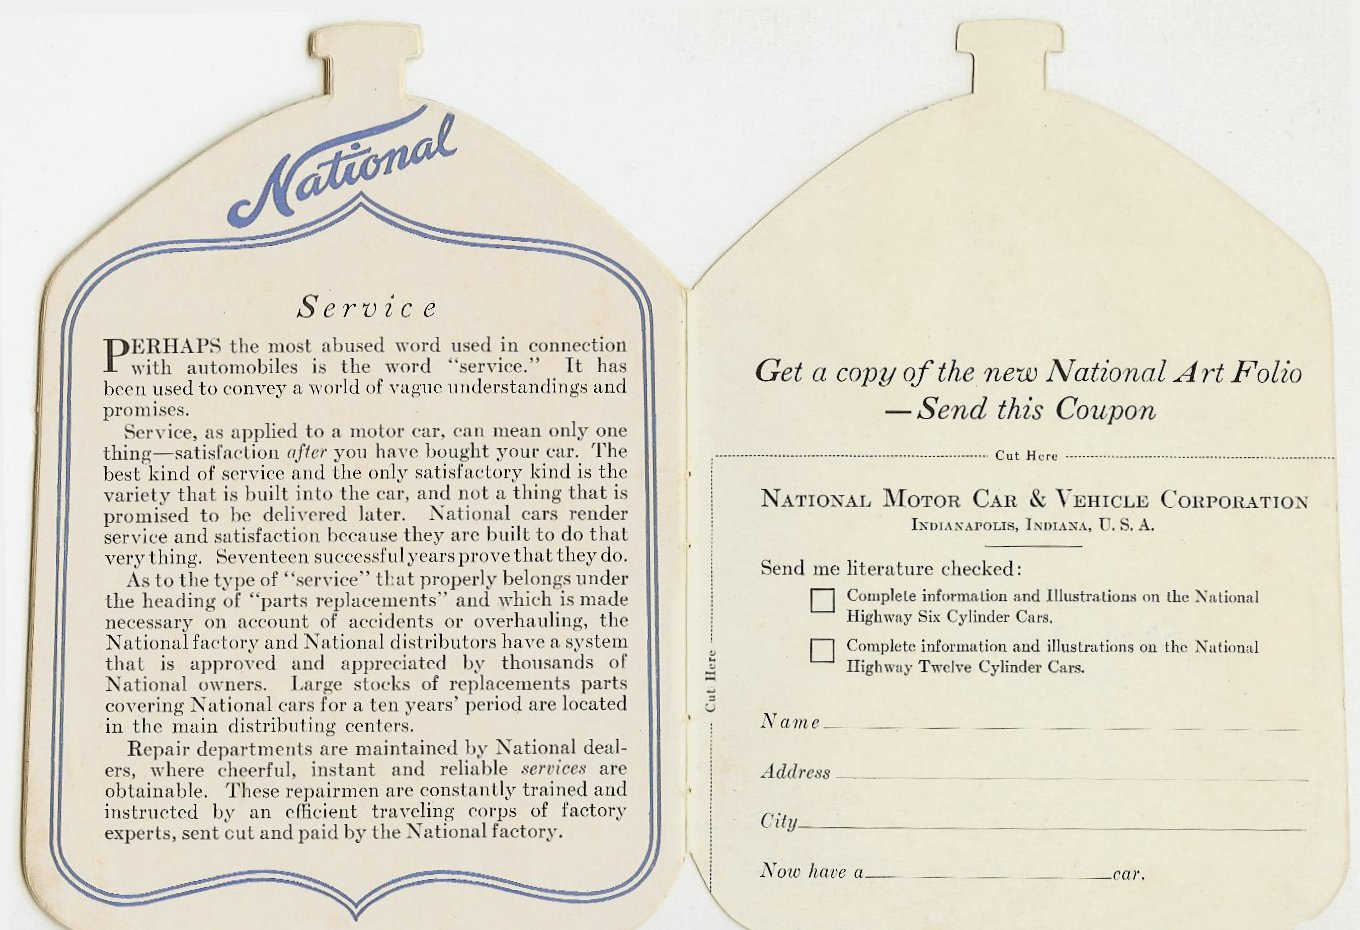 National
Service
PERHAPS the most abused word used in connection
with automobiles is the word "service." It has
been used to convey a world of vague understandings and
promises.
Service, as applied to a motor car, can mean only one
thing—satisfaction after you have bought your car. The
best kind of service and the only satisfactory kind is the
variety that is built into the car, and not a thing that is
promised to be delivered later. National cars render
service and satisfaction because they are built to do that
very thing. Seventeen successful years prove that they do.
As to the type of "service" that properly belongs under
the heading of "parts replacements" and which is made
necessary on account of accidents or overhauling, the
National factory and National distributors have a system
that is approved and appreciated by thousands of
National owners. Large stocks of replacements parts
covering National cars for a ten years' period are located
in the main distributing centers.
Repair departments are maintained by National deal-
ers, where cheerful, instant and reliable services are
obtainable. These repairmen are constantly trained and
instructed by an efficient traveling corps of factory
experts, sent out and paid by the National factory.
Get a copy of the new National Art Folio
—Send this Coupon
Cut Here
NATIONAL MOTOR CAR & VEHICLE CORPORATION
INDIANAPOLIS, INDIANA, U. S. A.
Send me literature checked:
Complete information and Illustrations on the National
Highway Six Cylinder Cars.
Complete information and illustrations on the National
Highway Twelve Cylinder Cars.
Cut Here
Name
Address
City
Now have a car.